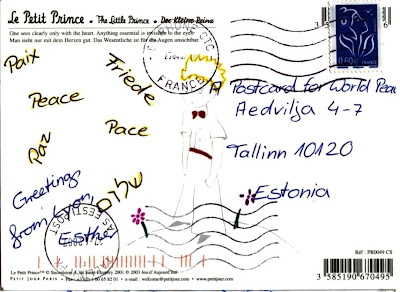 Le Petit Prince • The Little Prince • Der Kleine Prinz
One sees clearly only with the heart. Anything essential is invisible to the eyes.
Man sieht nur mit dem Herzen gut. Das Wesentliche ist für die Augen unsichtbar.
Paix
Friede
Peace
Paz
Pace
שלום
Greetings
from Lyon,
Esther
FRANCE
0,60 €
A Postcard for World Peace
Aedvilja 4-7
Tallinn 10120
Estonia
Le Petit Prince™ © Succession A. de Saint-Exupéry 2001 © 2003 Jeu d'Aujourd'hui
PETIT JOUR PARIS
www.petitjour.com
Réf : PR0049 CS
3 585190 670495